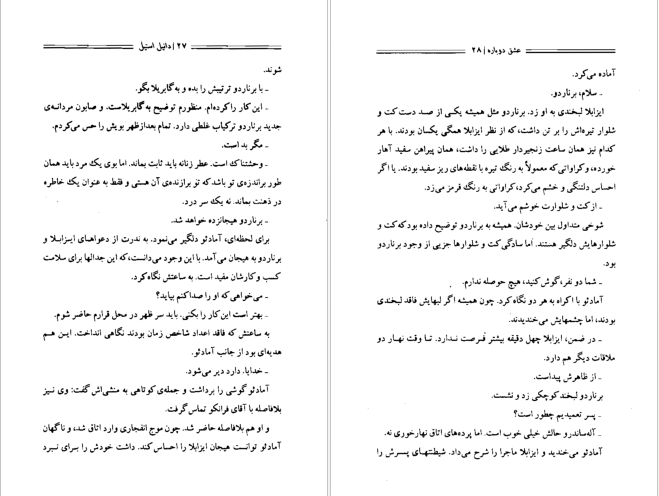 ۲۷ | دانیل استیل
شوند.
ـ با برناردو ترتیبش را بده و به گابریلا بگو.
ـ این کار را کرده‌ام. منظورم توضیح به گابریلاست. و صابون مردانه‌ی
جدید برناردو ترکیباب غلطی دارد. تمام بعدازظهر بویش را حس می‌کردم.
ـ مگر بد است.
ـ وحشتناک است. عطر زنانه باید ثابت بماند. اما بوی یک مرد باید همان
طور برانده‌ی تو باشد که تو برازنده‌ی آن هستی و فقط به عنوان یک خاطره
در ذهنت بماند. نه یک سر درد.
ـ برناردو هیجانزده خواهد شد.
برای لحظه‌ای، آمادئو دلگیر می‌نمود. به ندرت از دعواهای ایزابلا و
برناردو به هیجان می‌آمد. با این وجود می‌دانست، که این جدالها برای سلامت
کسب و کارشان مفید است. به ساعتش نگاه کرد.
ـ می‌خواهی که او را صدا کنم بیاید؟
ـ بهتر است این کار را بکنی. باید سر ظهر در محل قرارم حاضر شوم.
به ساعتش که فاقد اعداد شاخص زمان بودند نگاهی انداخت. این هم
هدیه‌ای بود از جانب آمادئو.
ـ خدایا. دارد دیر می‌شود.
آمادئو گوشی را برداشت و جمله‌ی کوتاهی به منشی‌اش گفت: وی نیز
بلافاصله با آقای فرانکو تماس گرفت.
و او هم بلافاصله حاضر شد. چون موج انفجاری وارد اتاق شد، و ناگهان
آمادئو توانست هیجان ایزابلا را احساس کند. داشت خودش را برای نبرد
عشق دوباره | ۲۸
آماده می‌کرد.
ـ سلام، برناردو.
ایزابلا لبخندی به او زد. برناردو مثل همیشه یکی از صد دست کت و
شلوار تیره‌اش را بر تن داشت، که از نظر ایزابلا همگی یکسان بودند. با هر
کدام نیز همان ساعت زنجیردار طلایی را داشت، همان پیراهن سفید آهار
خورده، و کراواتی که معمولاً به رنگ تیره با نقطه‌های ریز سفید بودند. یا اگر
احساس دلتنگی و خشم می‌کرد، کراواتی به رنگ قرمز می‌زد.
ـ از کت و شلوارت خوشم می‌آید.
شوخی متداول بین خودشان. همیشه به برناردو توضیح داده بود که کت و
شلوارهایش دلگیر هستند. اما سادگی کت و شلوارها جزیی از وجود برناردو
بود.
ـ شما دو نفر، گوش کنید، هیچ حوصله ندارم.
آمادئو با اکراه به هر دو نگاه کرد. چون همیشه اگر لبهایش فاقد لبخندی
بودند، اما چشمهایش می‌خندیدند.
ـ در ضمن، ایزابلا چهل دقیقه بیشتر فرصت ندارد. تا وقت نهار دو
ملاقات دیگر هم دارد.
ـ از ظاهرش پیداست.
برناردو لبخند کوچکی زد و نشست.
ـ پسر تعمیدیم چطور است؟
ـ آله‌ساندرو حالش خیلی خوب است. اما پرده‌های اتاق نهارخوری نه.
آمادئو می‌خندید و ایزابلا ماجرا را شرح می‌داد. شیطنتهای پسرش را